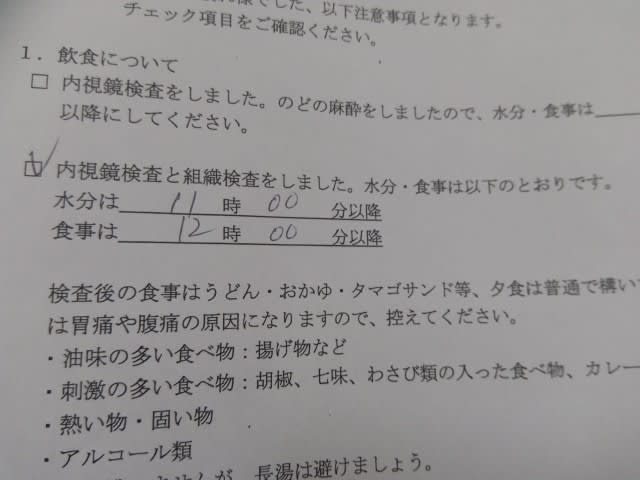 様でした、以下注意事項となります。
チェック項目をご確認ください。
1．飲食について
□ 内視鏡検査をしました。のどの麻酔をしましたので、水分・食事は
以降にしてください。
☑ 内視鏡検査と組織検査をしました。水分・食事は以下のとおりです。
水分は 11 時 00 分以降
食事は 12 時 00 分以降
検査後の食事はうどん・おかゆ・タマゴサンド等、夕食は普通で構い
は胃痛や腹痛の原因になりますので、控えてください。
・油味の多い食べ物：揚げ物など
・刺激の多い食べ物：胡椒、七味、わさび類の入った食べ物、カレー
・熱い物・固い物
・アルコール類
せんが、長湯は避けましょう。